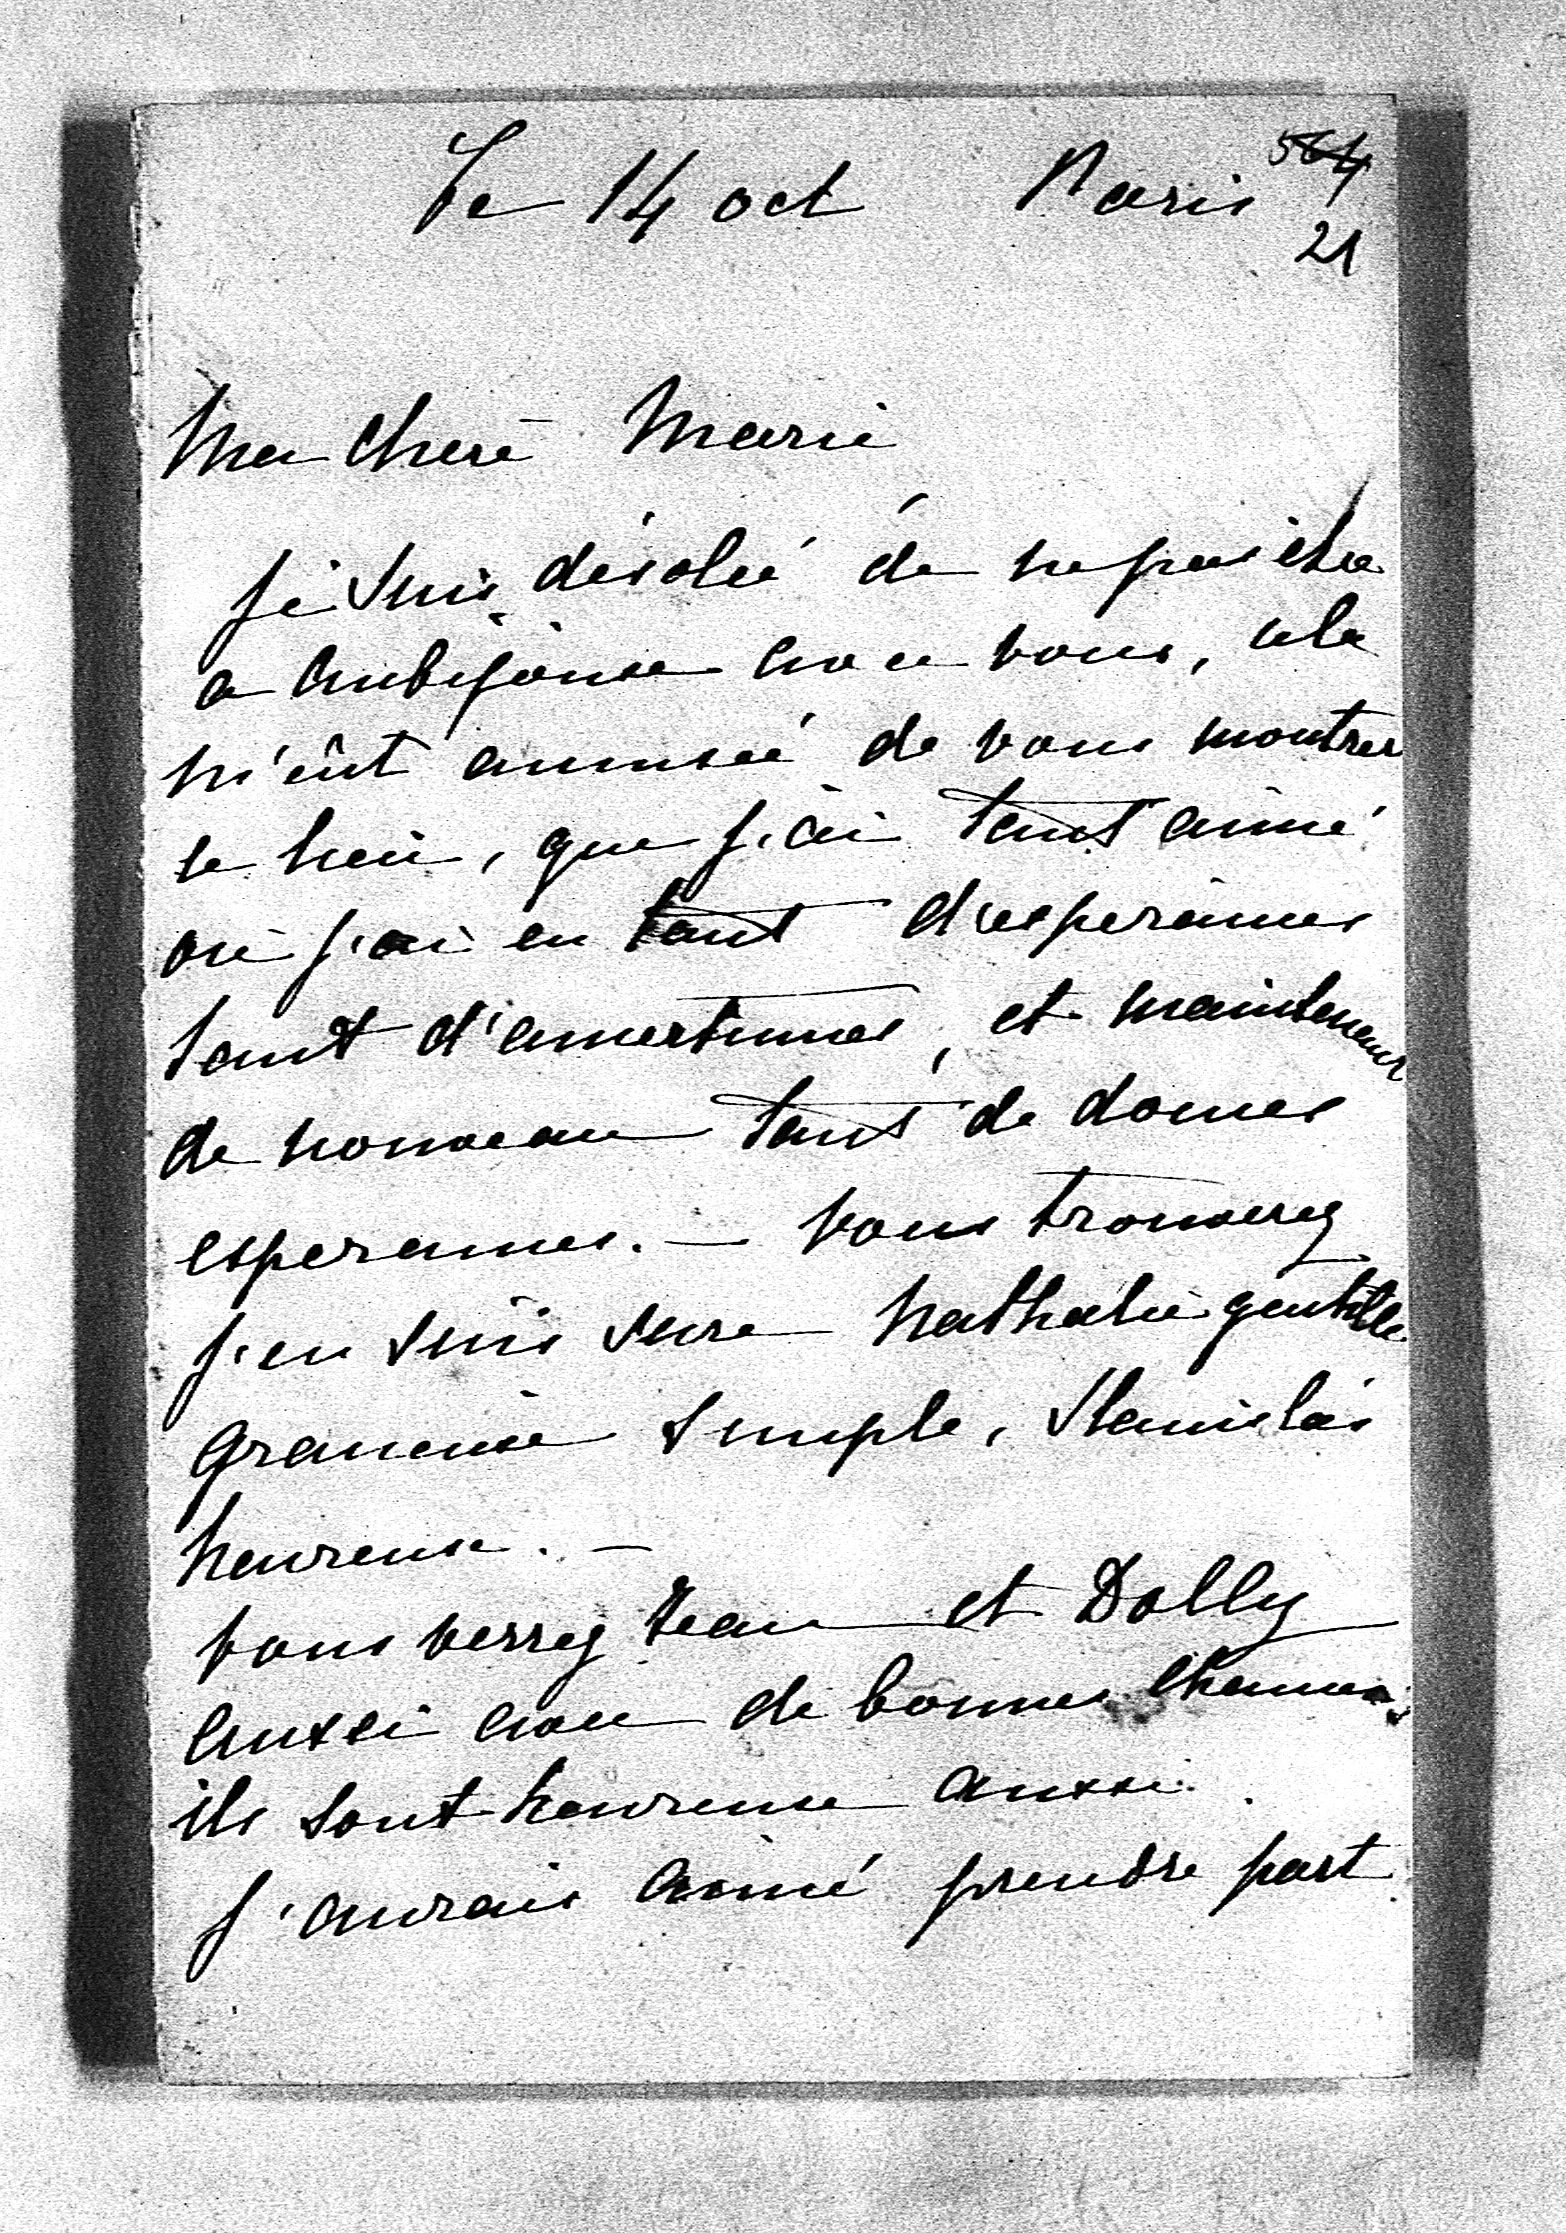 Le 14 oct Paris
564
21
Ma chere Marie
Je suis désolée de ne pas être
a avec vous, cela
m'eût amusée de vous montrer
ce lieu, que j'ai tant aimé
où j'ai eu tant d'esperances
tant d'amertumes, et maintenant
de nouveau tant de douces
esperances. — Vous trouverez
j'en suis sure Nathalie gentille
gracieuse simple, Stanislas
heureux. —
Vous verrez Jean et Dolly
aussi avec de bonnes chances
ils sont heureux aussi.
J'aurais aimé prendre part